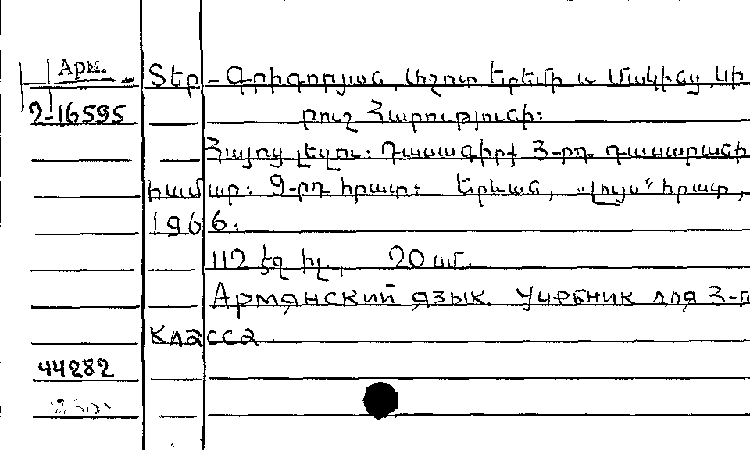 Арм.
2-16595
Տեր-Գրիգորյան, Աշոտ Երեմի և Մակինց, Սի
րուշ Հարությունի։
Հայոց լեզու։ Դասագիրք 3-րդ դասարանի
համար։ 9-րդ հրատ։ Երևան, „Լույս“ հրատ,
1966.
112 էջ իլ., 20 սմ.
Армянский язык. Учебник для 3-г
класса
44282